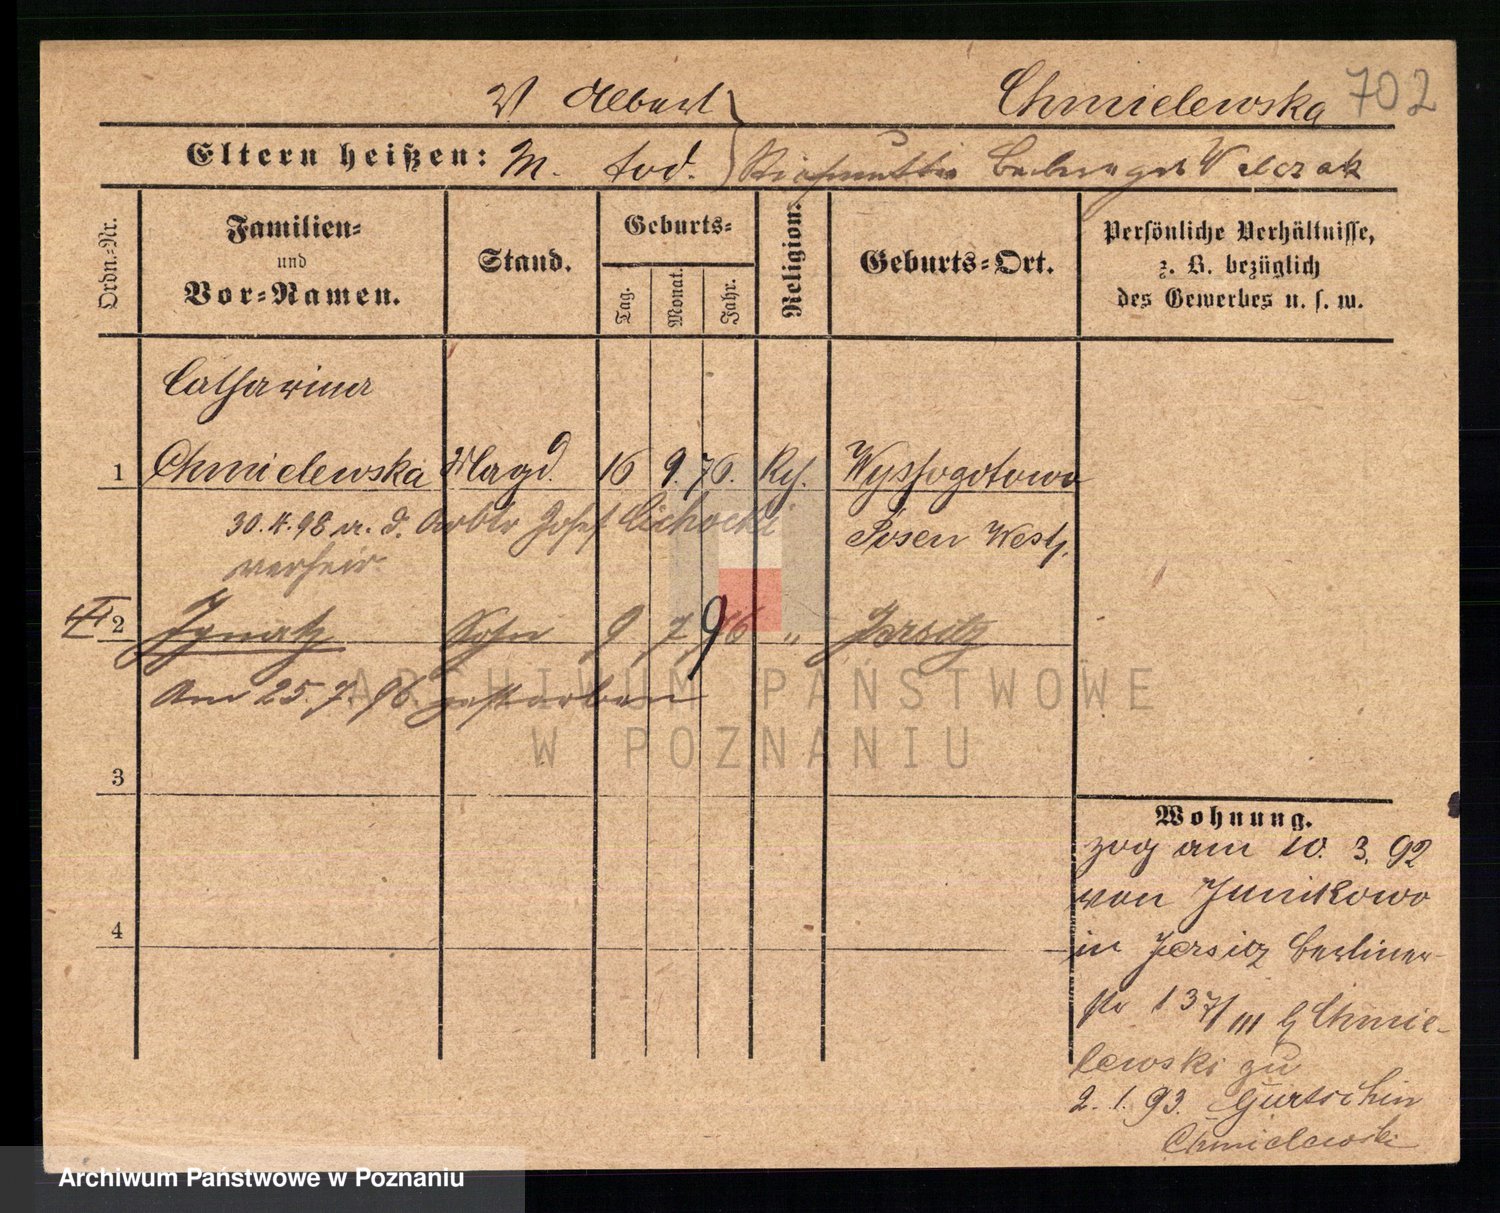 V Albert Chmielewska 702
Eltern heißen: M. tod. geb Welczak
Ordn.-Nr.
Familien-
und
Vor-Namen.
Stand.
Geburts-
Tag.
Monat.
Jahr.
Religion.
Geburts-Ort.
Persönliche Verhältnisse,
z. B. bezüglich
des Gewerbes u. s. w.
Catharina
1 Chmielewska Magd. 16 9. 76. Rk. Wyssogotowo
30. 4. 98 m. d. Arbtr Josef Cichocki Posen West.
verheir
II 2 Ignatz Sohn 9 7 96 " Jersitz
Am 25. 7. 96. gestorben
3
4
Wohnung.
zog am 10. 3. 92
von Junikowo
in Jersitz Berliner-
str 137/III b Chmie-
lewski zu
2. 1. 93. Gurtschin
Chmielewski
ARCHIWUM PAŃSTWOWE
W POZNANIU
Archiwum Państwowe w Poznaniu